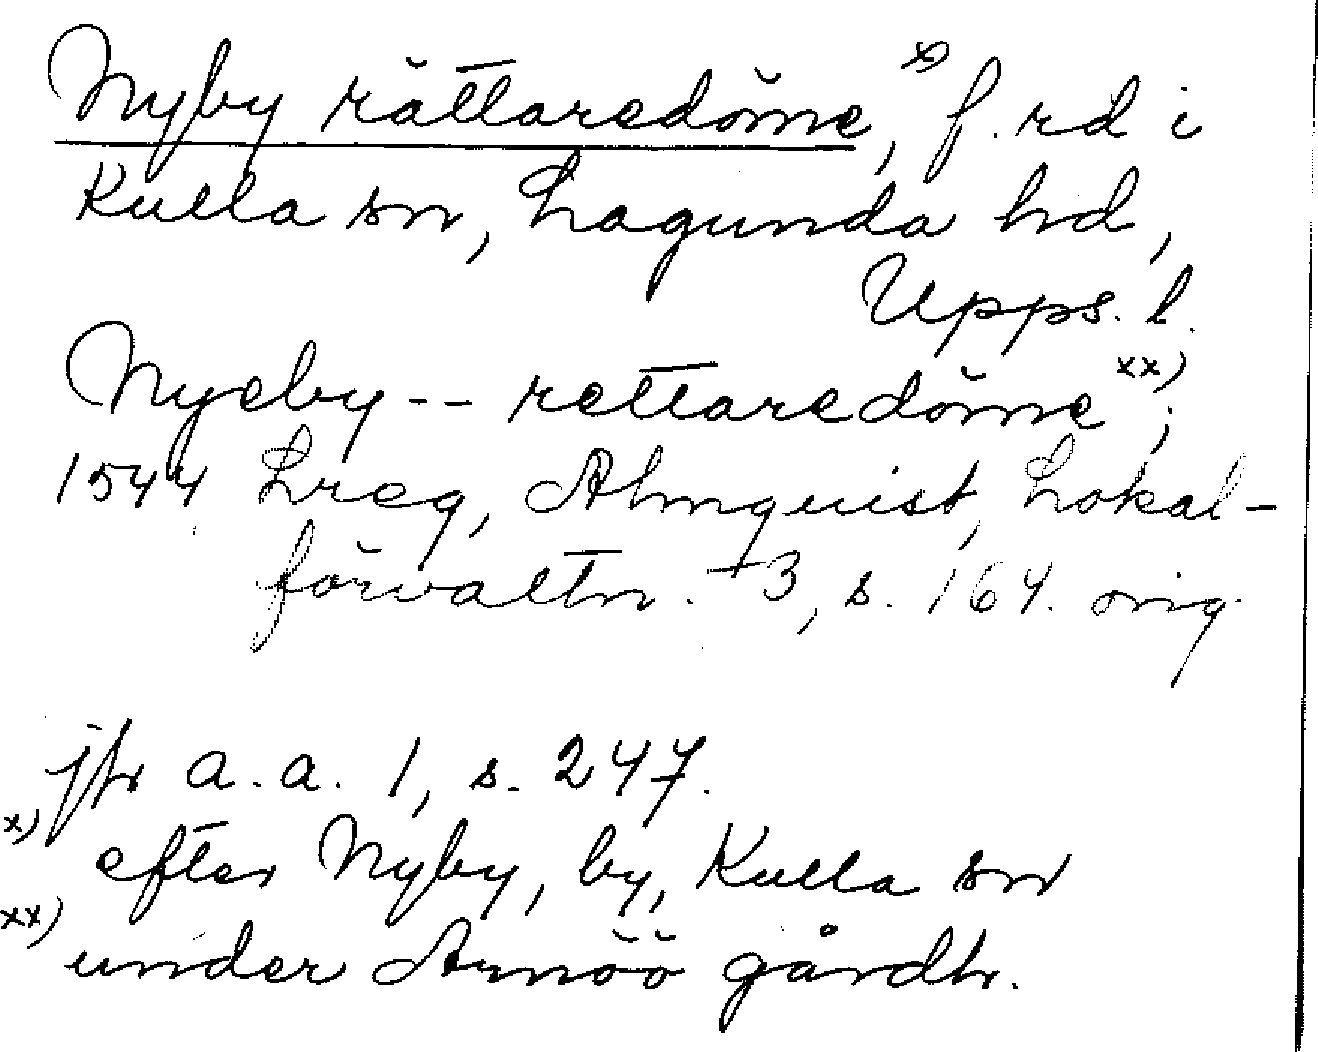 Nyby rättaredöme, x) f. rd i
Kulla sn, Lagunda hd,
Upps. l.
Nyeby -- rettaredöme xx);
1544 Lreg, Almquist, Lokal-
förvaltn. 3, s. 164. orig.
jfr a. a. 1, s. 247.
x) efter Nyby, by, Kulla sn
xx) under Arnöö gårdh.